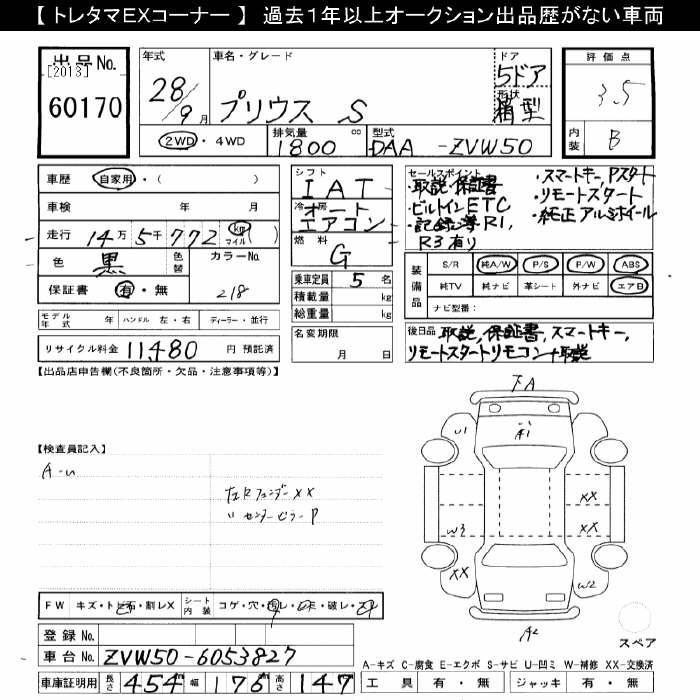 【 トレタマEXコーナー 】 過去1年以上オークション出品歴がない車両
出品No.
[2013]
60170
年式
28/9月
車名・グレード
プリウス S
ドア
5ドア
形状
箱型
2WD・4WD
排気量
1800 cc
型式
DAA -ZVW50
評価点
3.5
内装
B
車歴 自家用・( )
車検 年 月
走行 14万 5千 772 km マイル
色 黒 色替 カラーNo. 218
保証書 有・無
モデル年式 年 ハンドル 左・右 ディーラー・並行
リサイクル料金 11480 円 預託済
シフト
IAT
冷房
オートエアコン
燃料
G
乗車定員 5 名
積載量 kg
総重量 kg
名変期限
月 日
セールスポイント
・取説,保証書
・ビルトインETC
・記録簿R1,
R3有り
・スマートキー,Pスタート
・リモートスタート
・純正アルミホイール
装備品
S/R 純A/W P/S P/W ABS
純TV 純ナビ 革シート 外ナビ エアB
ナビ型番:
後日品 取説,保証書,スマートキー,
リモートスタートリモコン+取説
【出品店申告欄(不良箇所・欠品・注意事項等)】
【検査員記入】
A-U
左Rフェンダー XX
〃 センターピラー P
下A
U1
A1
XX
W3
XX
XX
W2
A2
スペア
FW キズ・トビ石・割レX シート内装 コゲ・穴・
破レ・
登録No.
車台No. ZVW50-6053827
車庫証明用 長さ 454 幅 176 高さ 147
A-キズ C-腐食 E-エクボ S-サビ U-凹ミ W-補修 XX-交換済
工具 有・無 ジャッキ 有・無